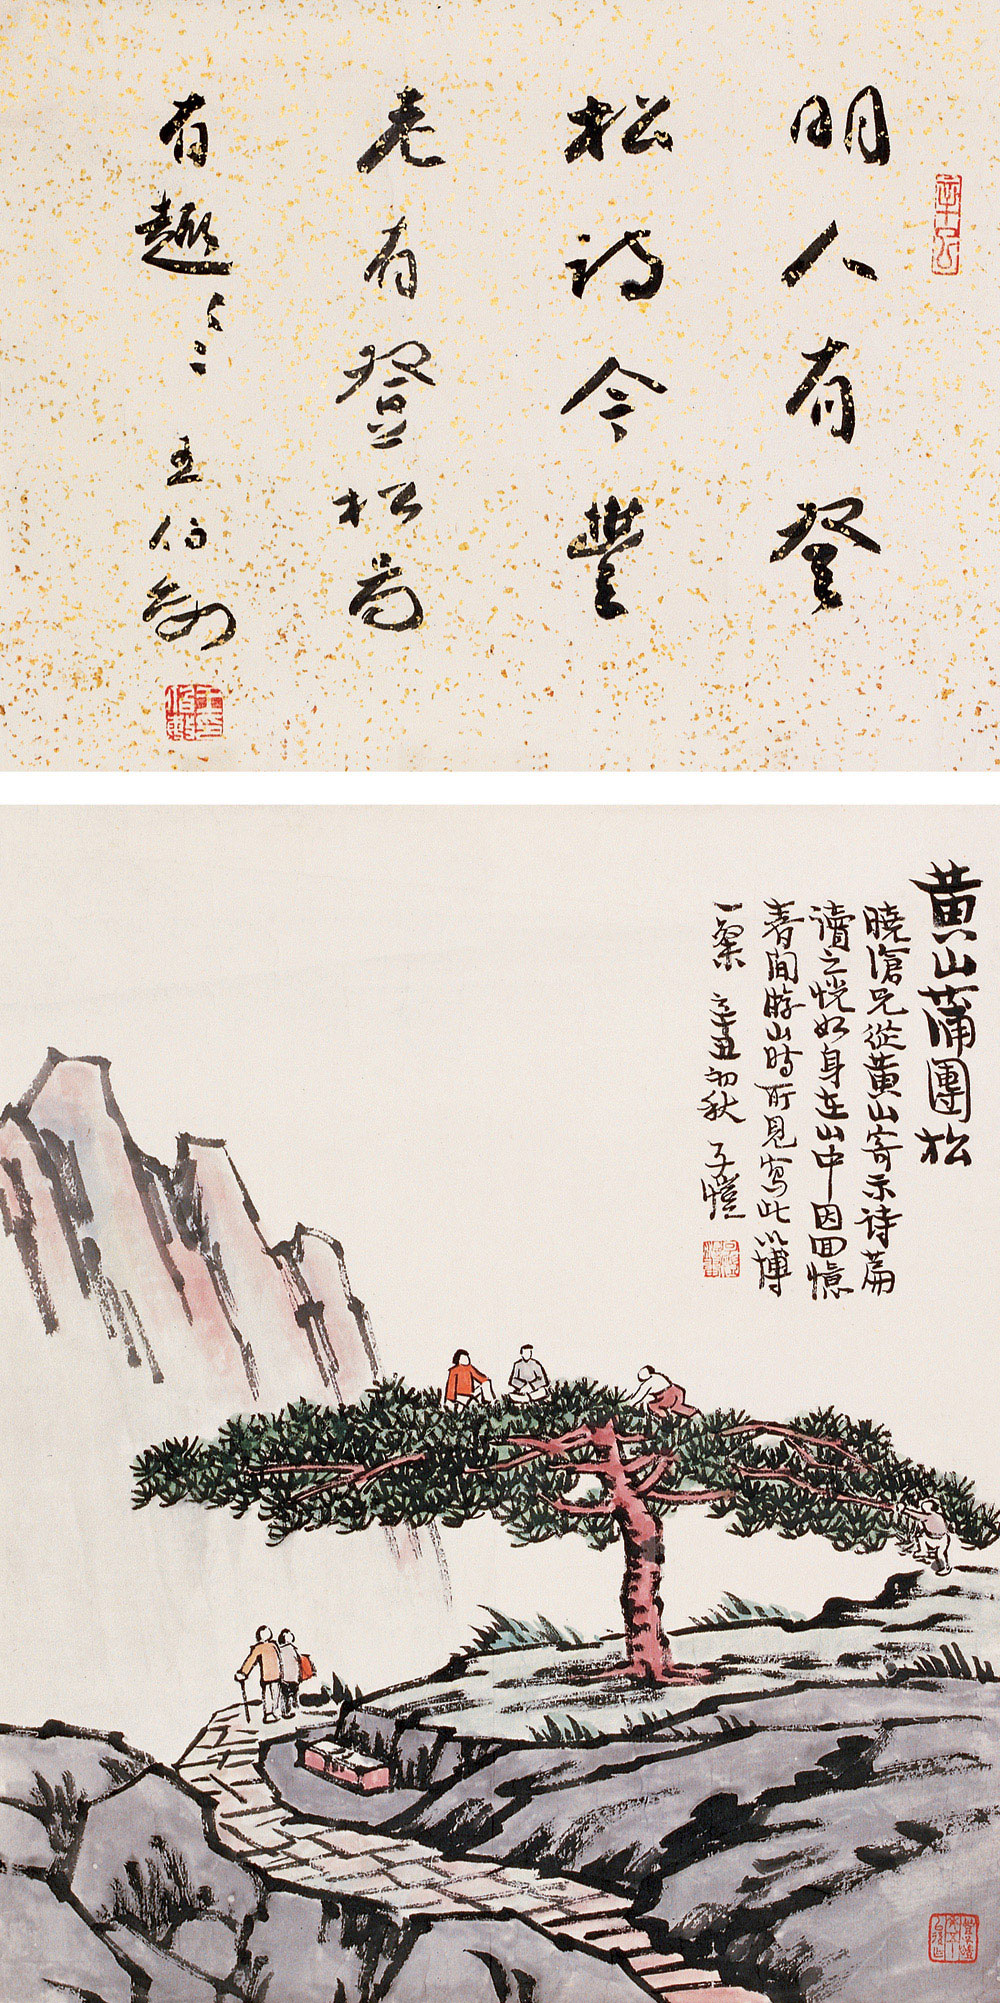 明人有登
松詩今豐
老有登松畫
有趣之之
王伯敏
黃山蒲團松
曉滄兄從黃山寄示詩篇
讀之恍如身在山中因回憶
春間游山時所見寫此以博
一粲 辛丑初秋 子愷
王伯敏